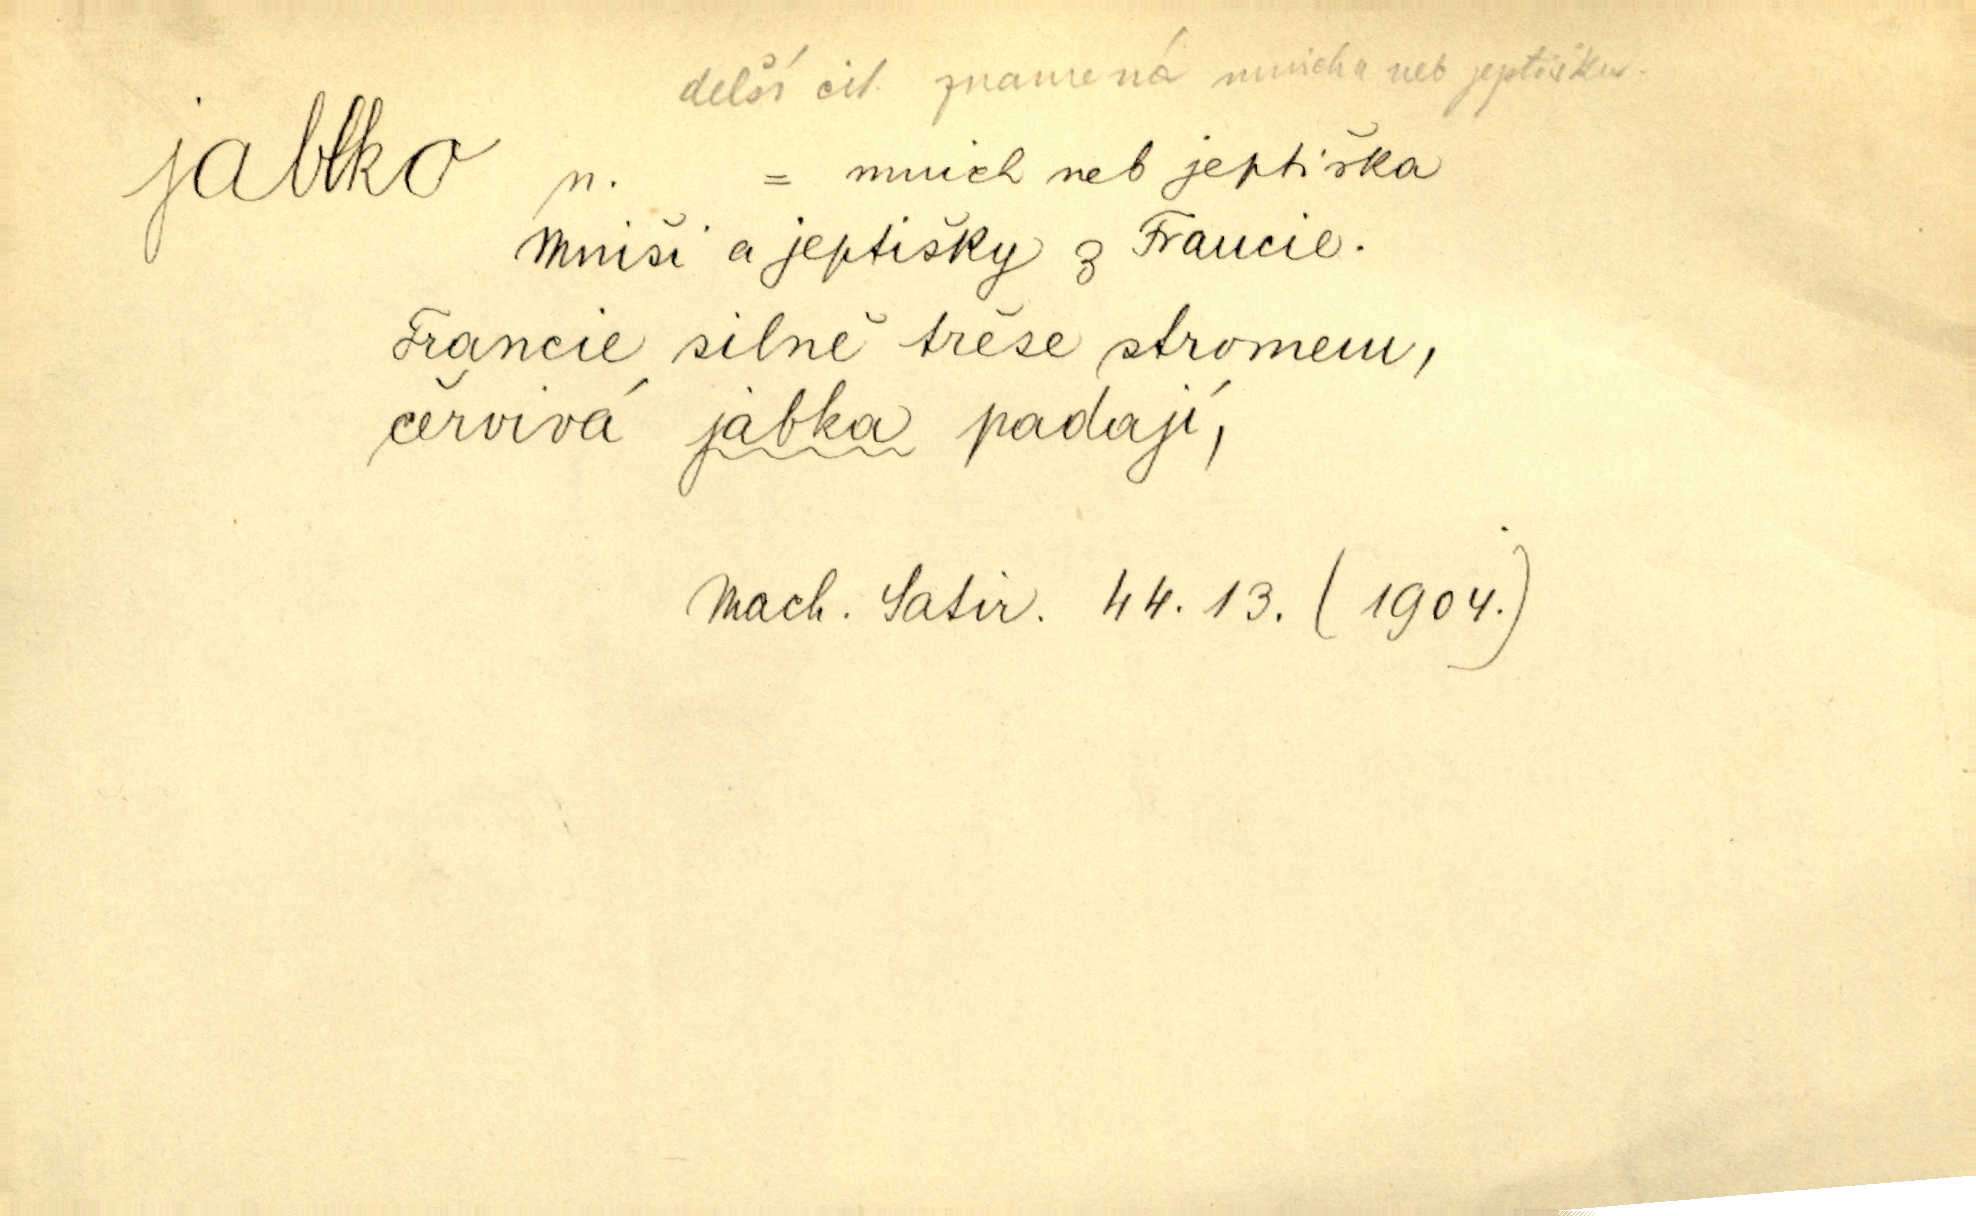 delší cit. znamená mnicha neb jeptišku.
jablko n. = mnich neb jeptiška
Mniši a jeptišky z Francie.
Francie silně trěse stromem,
červivá jabka padají,
Mach. Satir. 44. 13. (1904.)